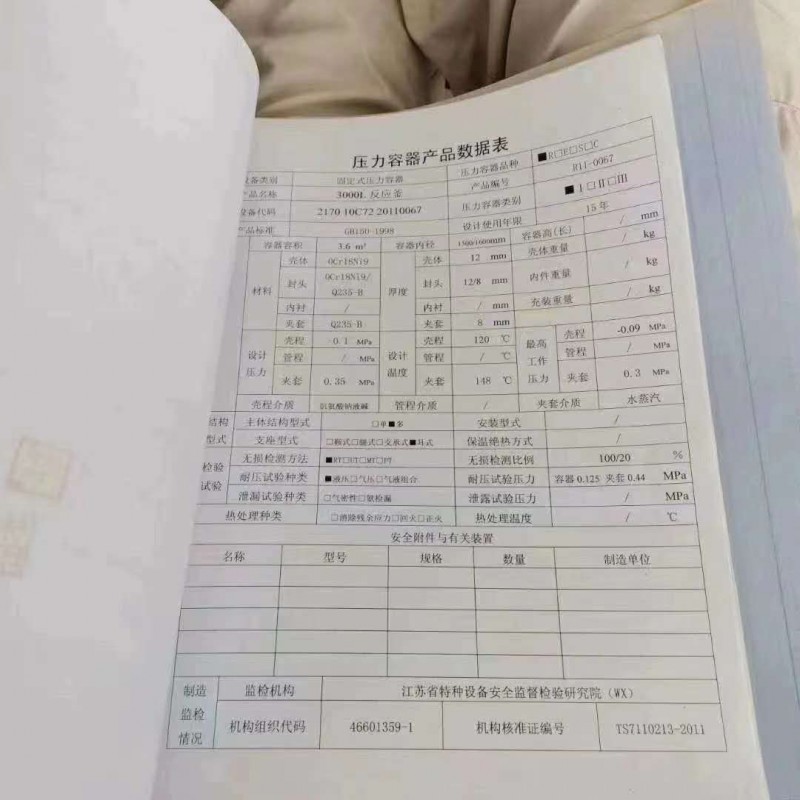 压力容器产品数据表
设备类别 固定式压力容器 压力容器品种 ■R□E□S□C
产品名称 3000L 反应釜 产品编号 R11-0067
设备代码 2170 10C72 20110067 压力容器类别 ■Ⅰ□Ⅱ□Ⅲ
产品标准 GB150-1998 设计使用年限 15 年
容器容积 3.6 m³ 容器内径 1500/1600mm 容器高(长) / mm
材料 壳体 0Cr18Ni9 厚度 壳体 12 mm 壳体重量 / kg
封头 0Cr18Ni9/Q235-B 封头 12/8 mm 内件重量 / kg
内衬 / 内衬 / mm 充装重量 / kg
夹套 Q235-B 夹套 8 mm
设计压力 壳程 0.1 MPa 设计温度 壳程 120 ℃ 最高工作压力 壳程 -0.09 MPa
管程 / MPa 管程 / ℃ 管程 / MPa
夹套 0.35 MPa 夹套 148 ℃ 夹套 0.3 MPa
壳程介质 管程介质 / 夹套介质 水蒸汽
结构型式 主体结构型式 □单■多 安装型式 /
支座型式 □鞍式□腿式□支承式■耳式 保温绝热方式 /
检验试验 无损检测方法 ■RT□UT□MT□PT 无损检测比例 100/20 %
耐压试验种类 ■液压□气压□气液组合 耐压试验压力 容器0.125 夹套0.44 MPa
泄漏试验种类 □气密性□氨检漏 泄露试验压力 / MPa
热处理种类 □消除残余应力□回火□正火 热处理温度 / ℃
安全附件与有关装置
名称 型号 规格 数量 制造单位
制造监检情况 监检机构 江苏省特种设备安全监督检验研究院（WX）
机构组织代码 46601359-1 机构核准证编号 TS7110213-2011